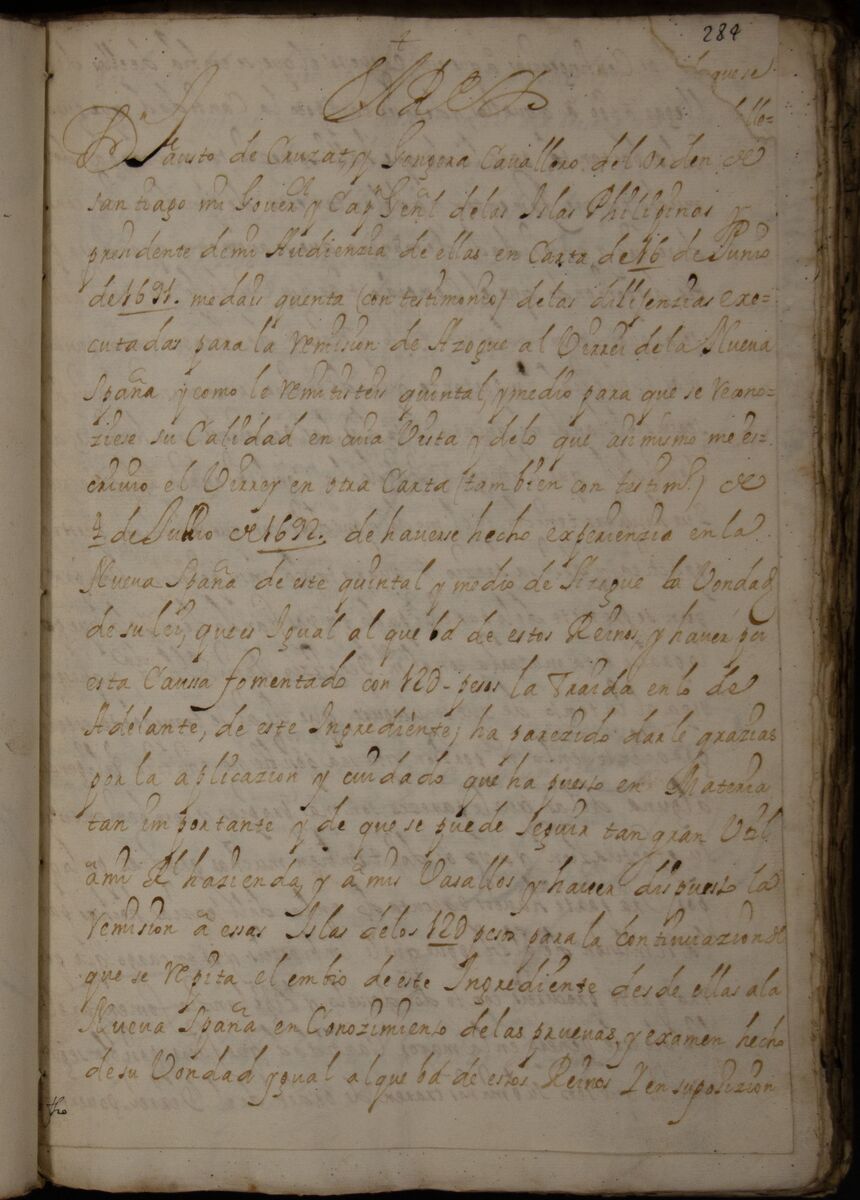 284
+
El Rey
que se
llo=
Dn Fausto de Cruzat, y Gongora Cavallero del orden de
santiago mi Goverr. y Capn Genl. de las Islas Philipinas y
presidente de mi Audienzia de ellas en Carta de 16 de Junio
de 1691. me dais quenta (con testimonio) de las dilijenzias exe=
cutadas para la remision de Azogue al Virrei de la Nueva
España y como le remitisteis quintal, y medio para que se recono=
ziese su Calidad en cuia Vista y de lo que asimismo me es=
crivio el Virrey en otra Carta (tambien con testimo.) de
de Jullio de 1692. de haverse hecho experienzia en la
Nueva España de este quintal y medio de Azogue la Vondad
de su lei, que es Igual al que ba de estos Reinos, y haver por
esta Causa fomentado con 12D- pesos la traida en lo de
Adelante, de este Ingrediente; ha parezido darle grazias
por la aplicazion y cuidado que ha puesto en Materia
tan importante y de que se puede seguir tan gran Util.
a mi Rl hazienda, y a mis Vasallos y haver dispuesto la
remision a essas Islas de los 12D pesos para la Continuazion de
que se repita el embio de este Ingrediente desde ellas a la
Nueva España en Conozimiento de las pruevas, y examen hecho
de su Vondad ygual al que ba de estos Reinos Y en suposizion